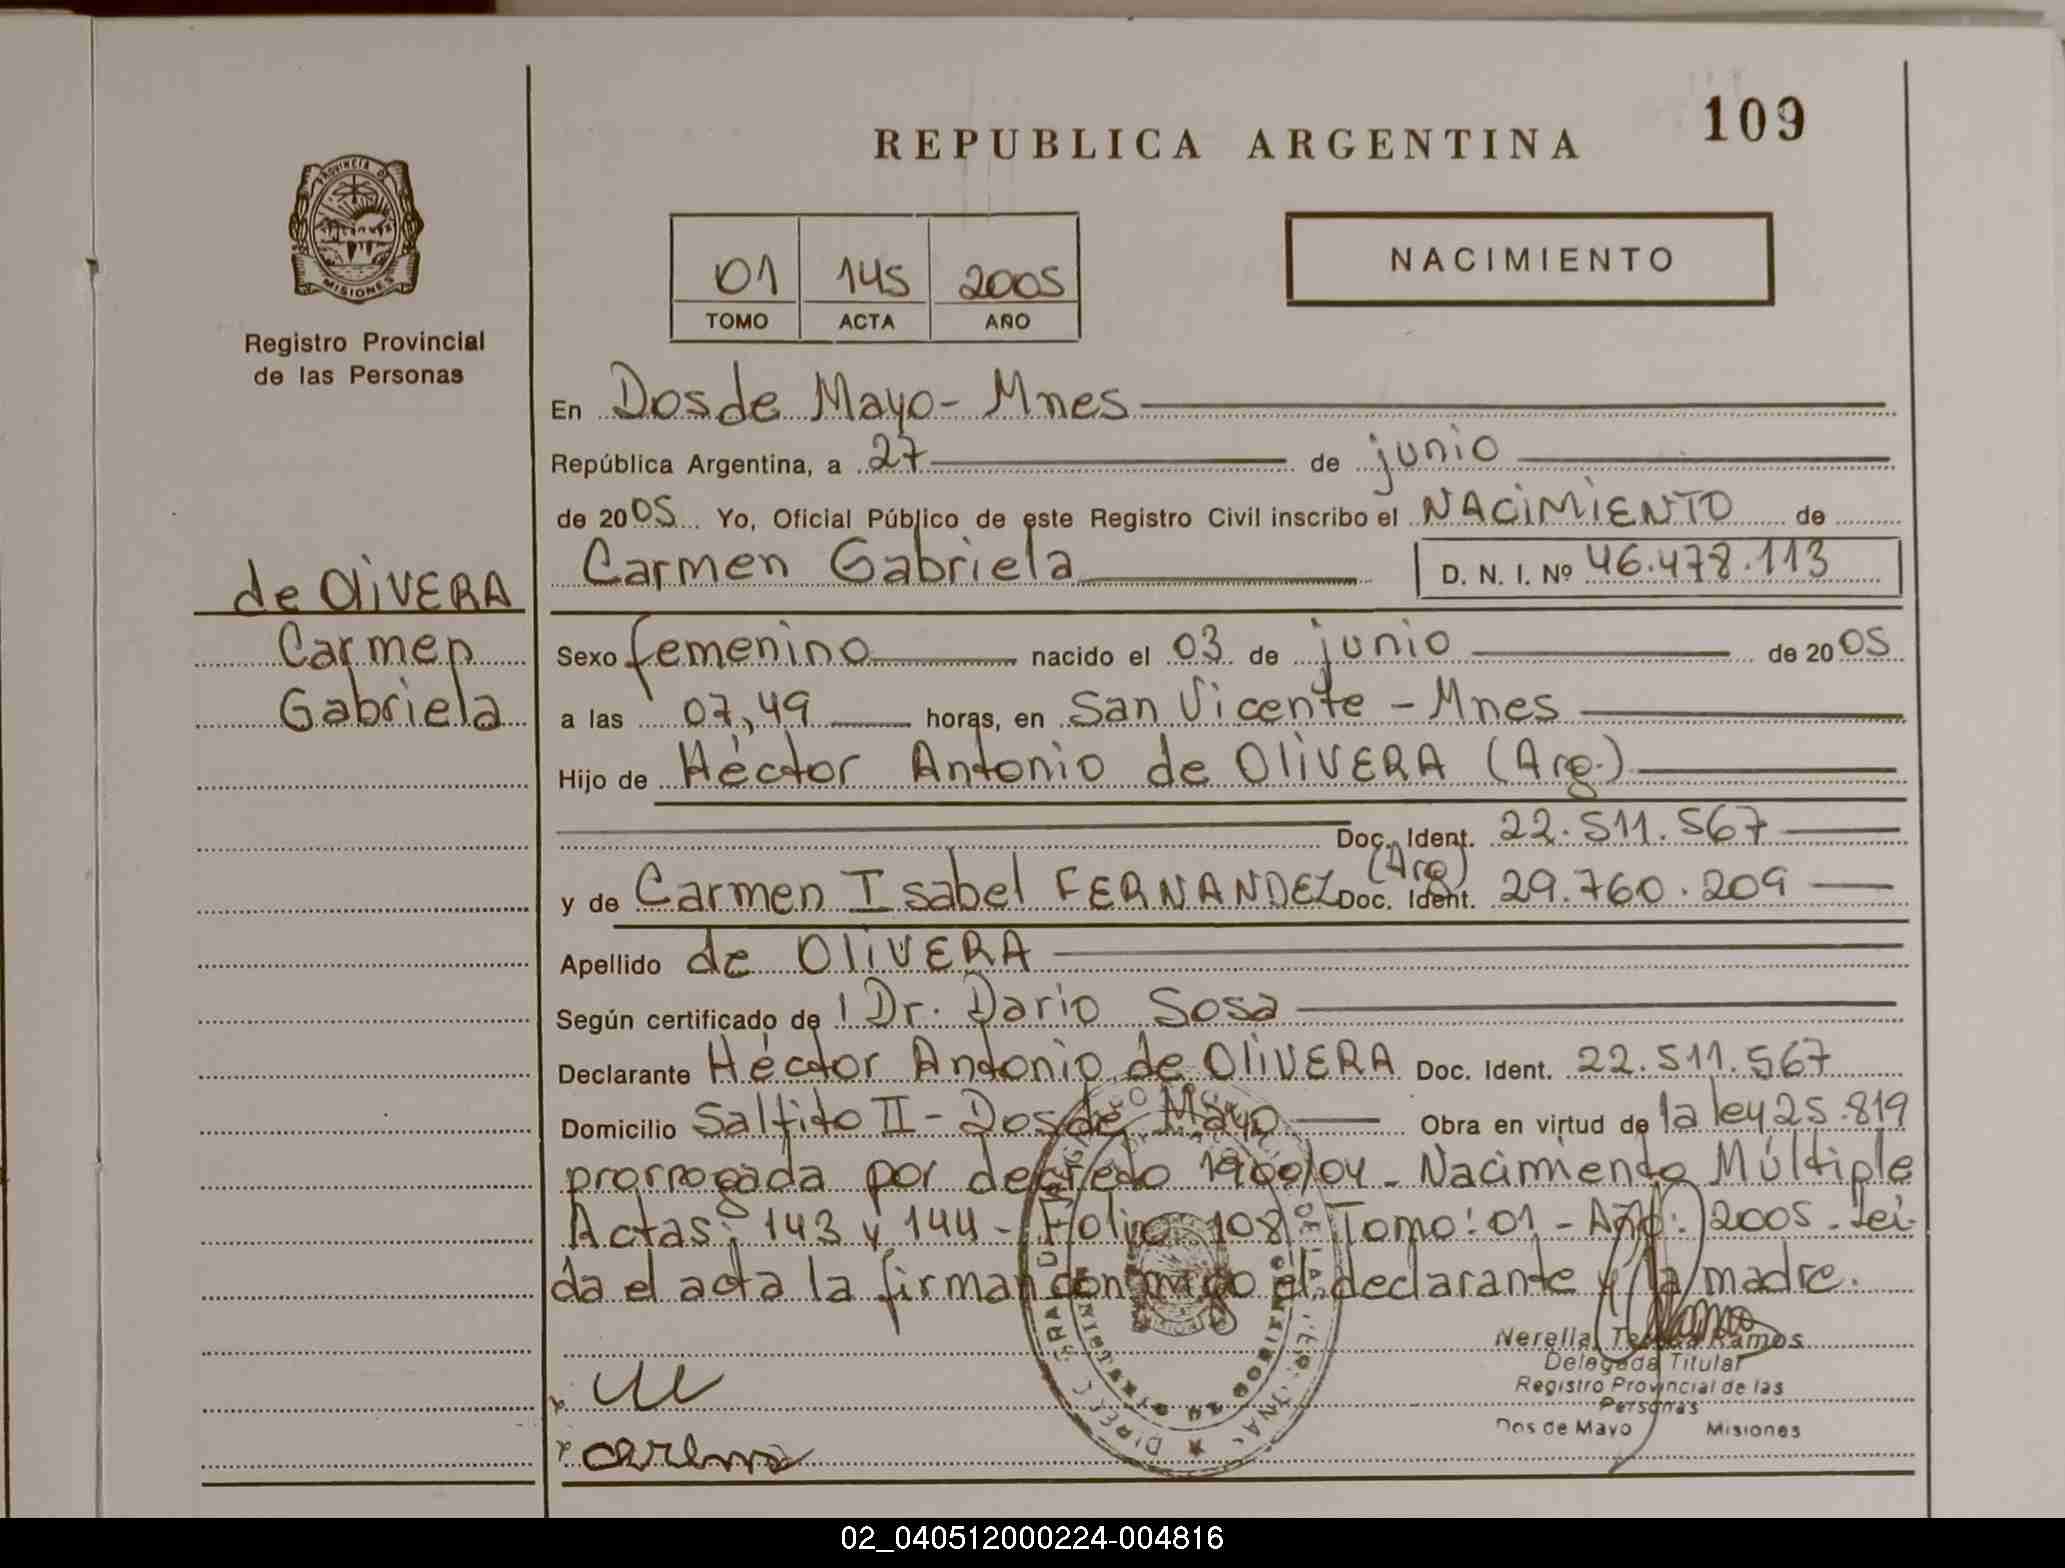 109
REPUBLICA ARGENTINA
PROVINCIA DE
MISIONES
NACIMIENTO
01 145 2005
TOMO ACTA AÑO
Registro Provincial
de las Personas
En Dos de Mayo - Mnes
República Argentina, a 27 de junio
de 2005 Yo, Oficial Público de este Registro Civil inscribo el NACIMIENTO de
Carmen Gabriela D. N. I. Nº 46.478.113
de OLIVERA
Carmen
Gabriela
Sexo femenino nacido el 03 de junio de 2005
a las 07,49 horas, en San Vicente - Mnes
Hijo de Héctor Antonio de OLIVERA (Arg.)
Doc. Ident. 22.511.567
y de Carmen Isabel FERNANDEZ (Arg) Doc. Ident. 29.760.209
Apellido de OLIVERA
Según certificado de Dr. Dario Sosa
Declarante Héctor Antonio de OLIVERA Doc. Ident. 22.511.567
Domicilio Saltito II - Dos de Mayo Obra en virtud de la ley 25.819
prorrogada por decreto 1900/04 - Nacimiento Múltiple
Actas: 143 y 144 - Folio 108 Tomo: 01 - Año: 2005 - Lei
da el acta la firman conmigo el declarante y la madre.
Nerella Ramos
Delegada Titular
Registro Provincial de las
Personas
Dos de Mayo Misiones
02_040512000224-004816